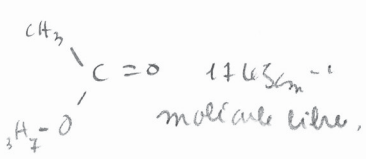 CH3
C = O 1745 cm-1
3H7-O molécule libre.